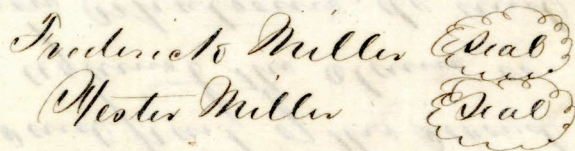 Frederick Miller Seal
Hester Miller Seal